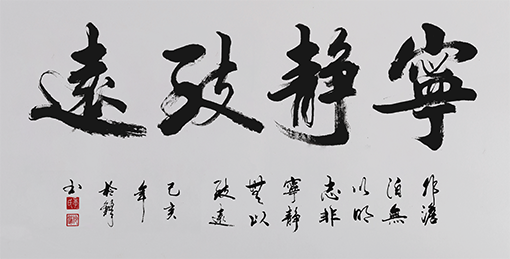 寧靜致遠
非澹
泊無
以明
志非
寧靜
無以
致遠
己亥
年
书